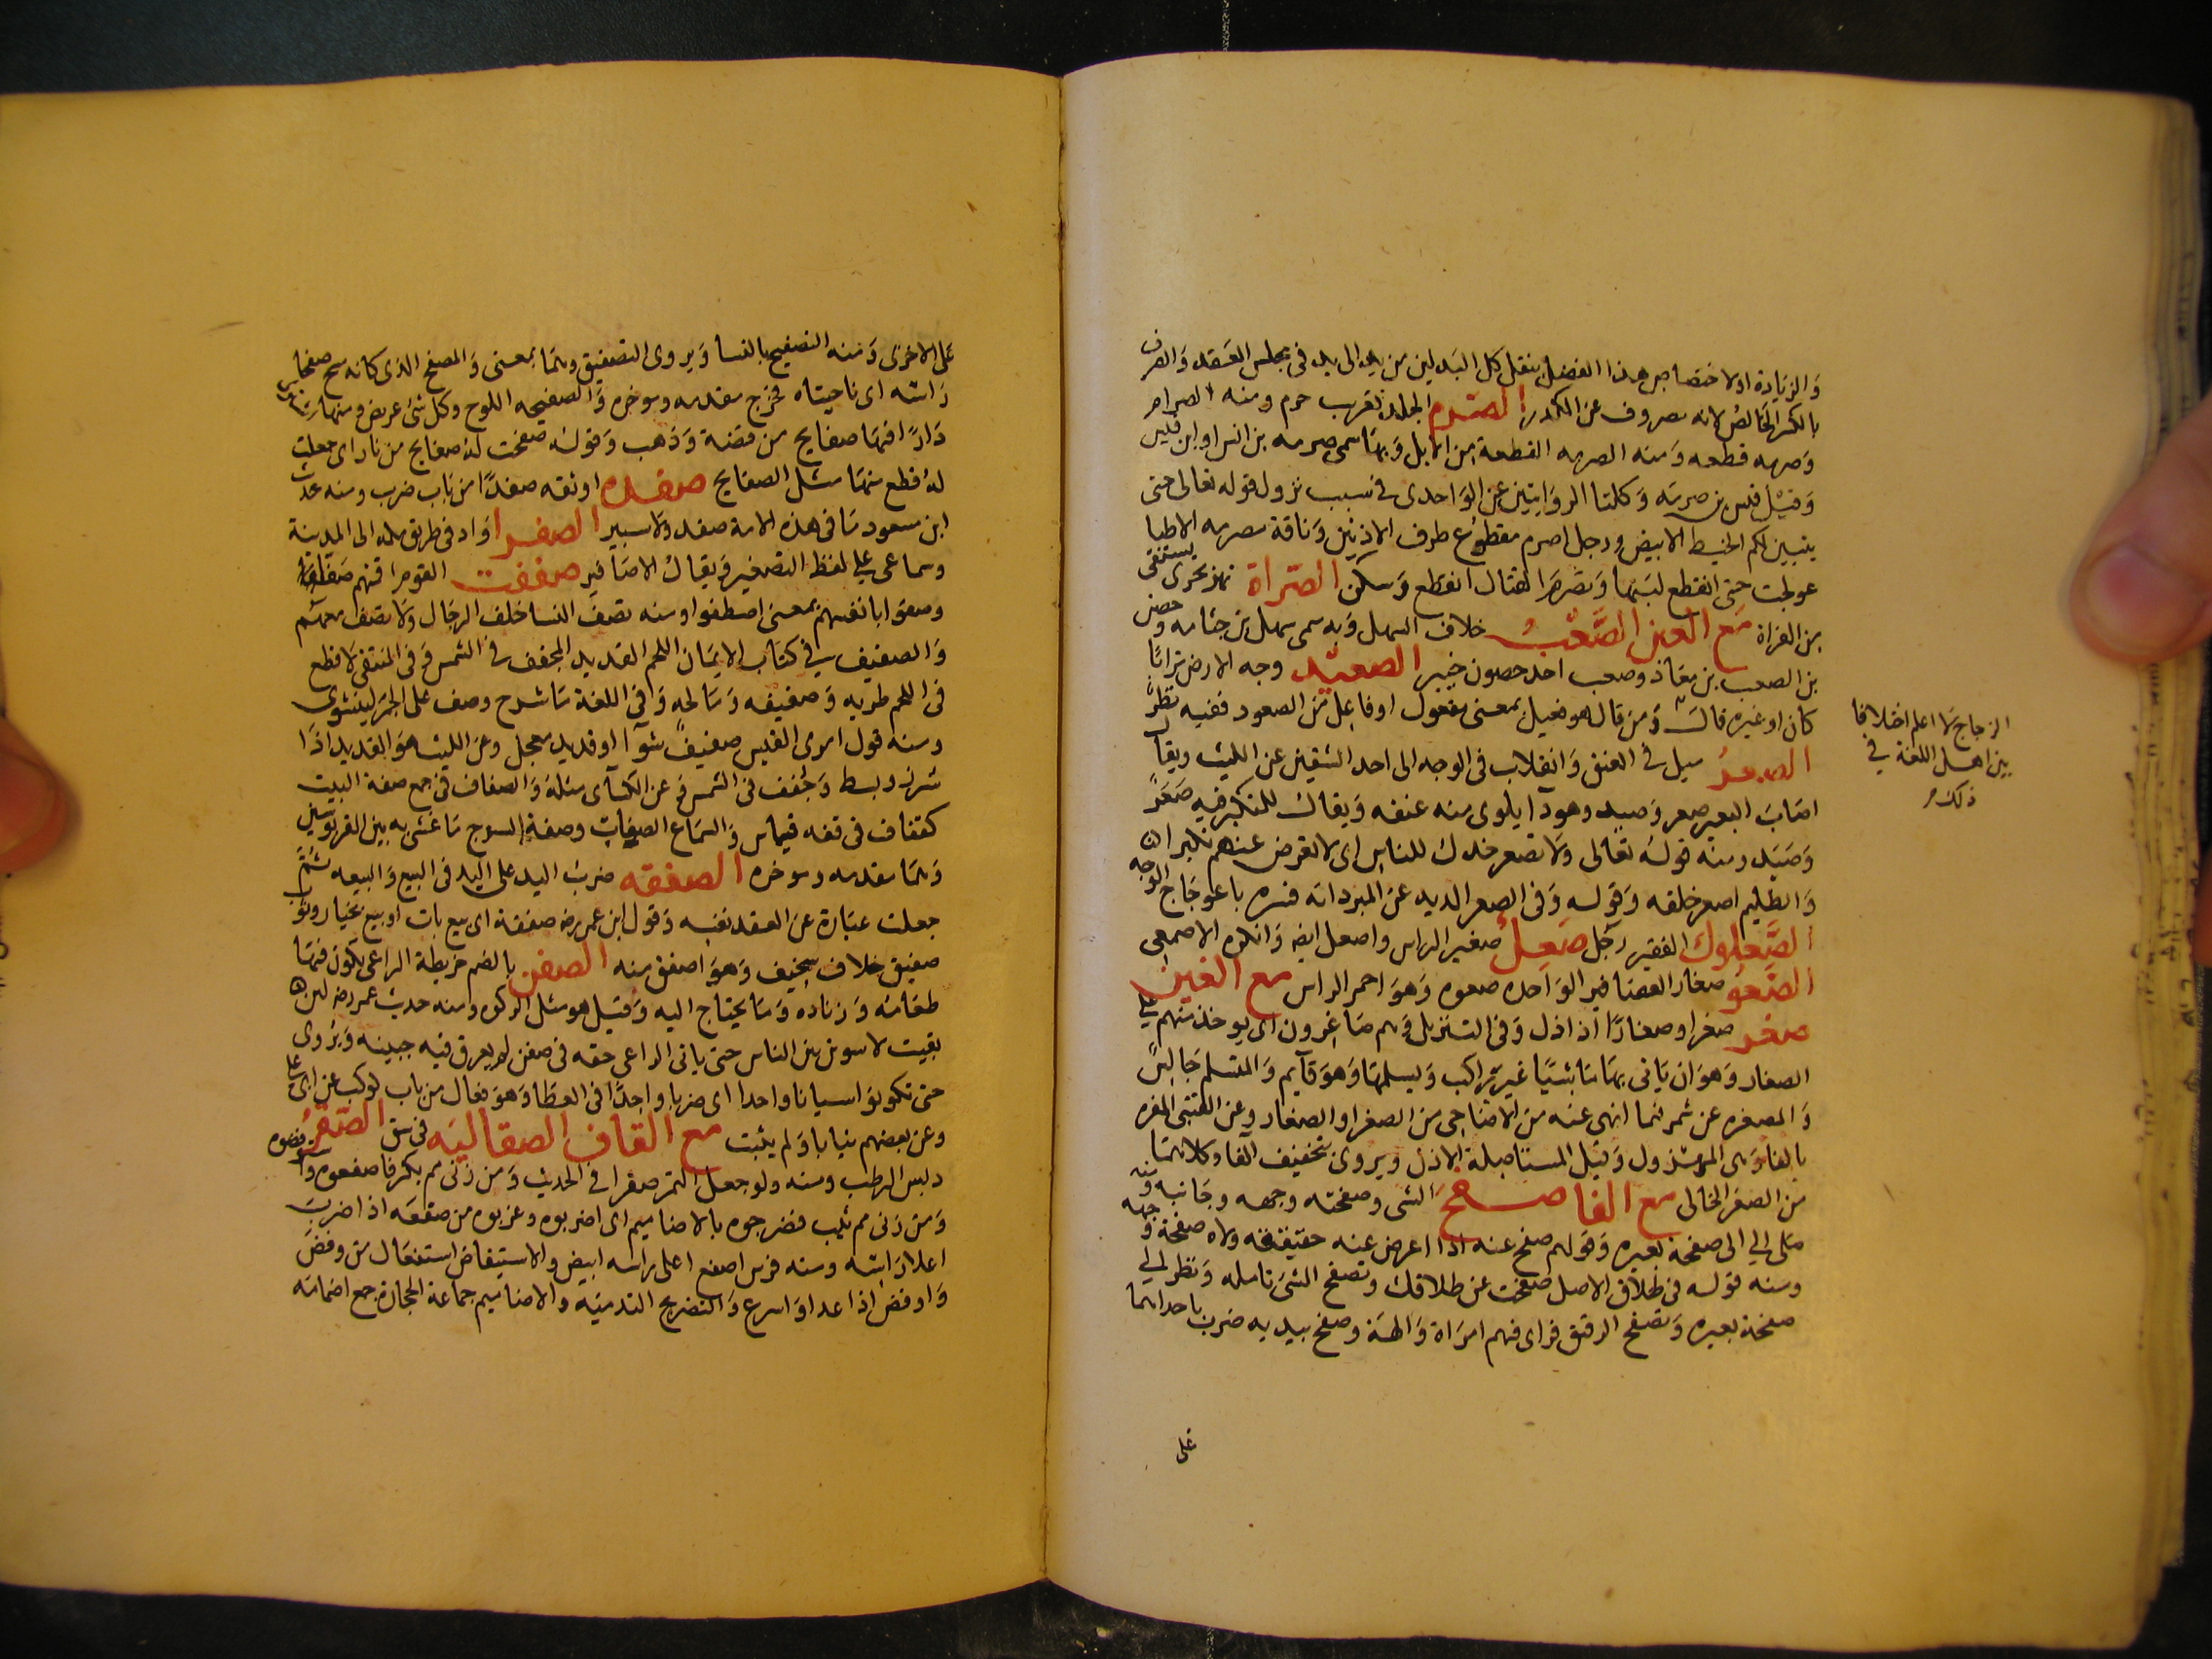 والزيادة اولاختصاص هذا الفضل بنقل كل البدلين من يد الى يد فى مجلس العقد والصرف
بالكسر الخالص لانه مصروف عن الكدر الصرم الجلد تعريب جرم ومنه الصرام
وصرمه قطعه ومنه الصرمه القطعة من الابل وبها سمى صرمه بن انس او ابن قيس
وقيل قيس بن صرمه وكلتا الروايتين عن الواحدى فى سبب نزول قوله تعالى حتى
يتبين لكم الخيط الابيض ورجل اصرم مقطوع طرف الاذنين وناقة مصرمه الاطبا
عولجت حتى انقطع لبنها وتصرم القتال انقطع وسكن الصراة نهر يجرى يستقى
من الفراة مع العين الصعب خلاف السهل وبه سمى سهل بن جثامه وحصن
بن الصعب بن معاذ وصعب احد حصون خيبر الصعيد وجه الارض ترابا
كان او غيره قال ومن قال هو فعيل بمعنى مفعول او فاعل من الصعود ففيه نظر
الصعر ميل فى العنق وانقلاب فى الوجه الى احد الشقين عن الليث ويقال
اصاب البعير صعر وصيد وهو داء يلوى منه عنقه ويقال للمتكبر فيه صعر
وصيد ومنه قوله تعالى ولا تصعر خدك للناس اى لا تعرض عنهم تكبرا
والظليم اصعر خلقه وقوله وفى الصعر الديه عن المبرد انه فسره باعوجاج الوجه
الصعلوك الفقير رجل صعل صغير الراس واصعل ايضا وانكره الاصمعى
الصعو صغار العصافير الواحده صعوه وهو احمر الراس مع الغين
صغر صغرا وصغارا اذا ذل وفى التنزيل وهم صاغرون اى يوخذ منهم على
الصغار وهو ان ياتى بها ماشيا غير راكب ويسلمها وهو قايم والمتسلم جالس
والمصغره عن شمر فيما انهى عنه من الاضاحى من الصغر او الصغار وعن القتبى المفره
بالفا وهى المهزول وقيل المستاصلة الاذن ويروى بتخفيف الفا وكلاهما
من الصفر الخالى مع الفا صفح الشى وصفحته وجهه وجانبه ومنه
صلى الى صفحة بعيره وقولهم صفح عنه اذا اعرض عنه حقيقته ولاه صفحة وجهه
ومنه قوله فى طلاق الاصل صفحت عن طلاقك وتصفح الشى تامله ونظر الى
صفحة بعيره وتصفح الرقيق فراى فيهم امراة والهة وصفح بيديه ضرب باحداهما
على
الزجاج لا اعلم اختلافا
بين اهل اللغة فى
ذلك
على الاخرى ومنه التصفيح بالنسا ويروى التصفيق وهما بمعنى والمصفح الذى كانه مسح صفحا
راسه اى ناحيتاه فخرج مقدمه وموخره والصفيحه اللوح وكل شى عريض ومنها
دارا فيها صفايح من فضة وذهب وقوله صفحت له صفايح من نار اى جعلت
له قطع منها مثل الصفايح صفده اوثقه صفدا من باب ضرب ومنه حديث
ابن مسعود ما فى هذه الامة صفد ولا تسيير الصفرا واد فى طريق مكه الى المدينة
وسماعى على لفظ التصغير ويقال الاصافير صففت القوم اقمتهم صفا
وصفوا بانفسهم بمعنى اصطفوا ومنه تصف النسا خلف الرجال ولا تصف معهم
والصفيف فى كتاب الايمان اللحم القديد المجفف فى الشمس وفى المنتقى لا قطع
فى اللحم طريه وصفيفه ومالحه وفى اللغة ما شرح وصف على الجمر لينشوى
ومنه قول امرى القيس صفيف شواء او قدير معجل وعن الليث هو القديد اذا
شرر وبسط وجفف فى الشمس وعن الكسآى مثله والصفاف فى جمع صفة البيت
كقفاف فى قفه قياس والسماع الصفات وصفة السرج ما غشى به بين القربوسين
وهما مقدمه وموخره الصفقه ضرب اليد على اليد فى البيع والبيعه ثم
جعلت عبارة عن العقد نفسه وقول ابن عمر رضه صفقة اى بيع بات او بيع بخيار وثوب
صفيق خلاف سخيف وهو اصفق منه الصفن بالضم خريطة الراعى يكون فيها
طعامه وزناده وما يحتاج اليه وقيل هو مثل الركوه ومنه حديث عمر رضه لين
بقيت لاسوين بين الناس حتى ياتى الراعى حقه فى صفن لم يعرق فيه جبينه ويروى
حتى تكونوا بيانا واحدا اى ضربا واحدا فى العطا وهو فعال من باب كوكب عن ابى على
وعن بعضهم بيابا ولم يثبت مع القاف الصقالبه فى سق الصقر
دبس الرطب ومنه ولو جعل التمر صقرا فى الحديث ومن زنى مم بكر فاصقعوه
ومن زنى مم ثيب فضرجوه بالاضاميم اى اضربوه وغربوه من صقعه اذا ضرب
اعلا راسه ومنه فرس اصقع اعلى راسه ابيض والاستيفاض استفعال من وفض
واوفض اذا عدا واسرع والتضريج التدميه والاضاميم جماعة الحجارة جمع اضمامه